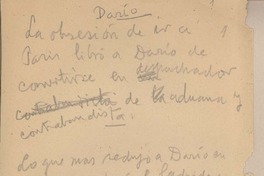 Darío
La obsesión de ir a
Paris libró a Darío de
convertirse en despachador
de aduana y
contrabandista.
Lo que mas sedujo a Darío en